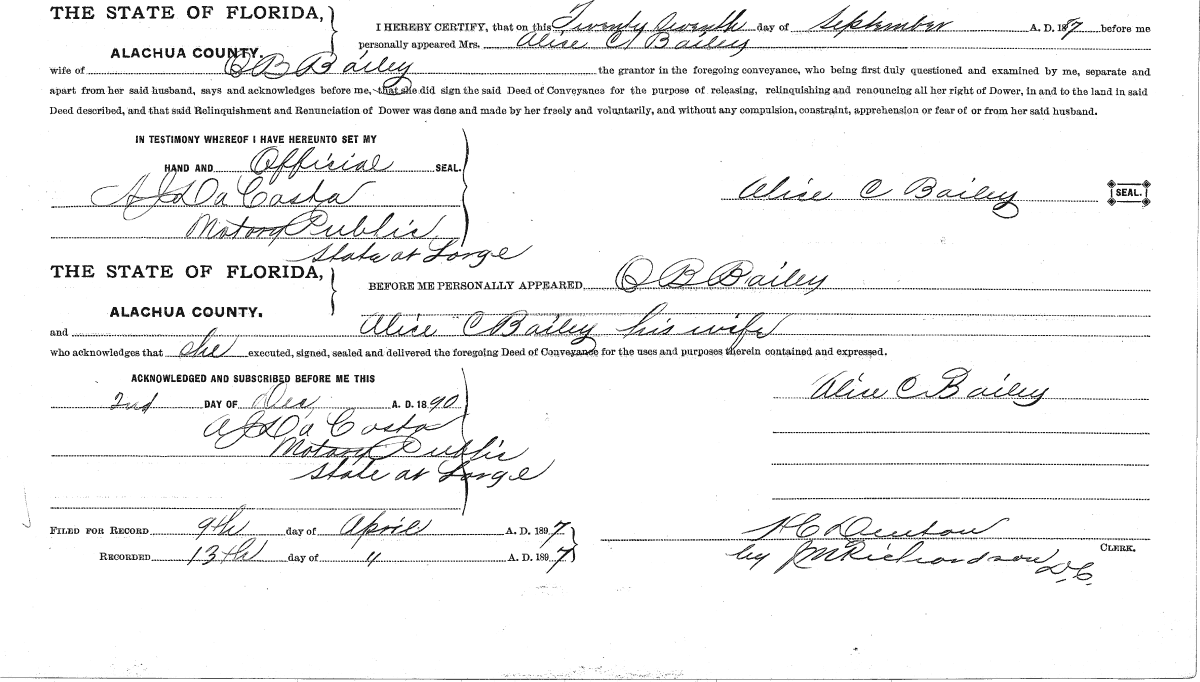 THE STATE OF FLORIDA,
ALACHUA COUNTY.
I HEREBY CERTIFY, that on this Twenty Seventh day of September A. D. 1887 before me
personally appeared Mrs. Alice C Bailey
wife of O B Bailey the grantor in the foregoing conveyance, who being first duly questioned and examined by me, separate and
apart from her said husband, says and acknowledges before me, that she did sign the said Deed of Conveyance for the purpose of releasing, relinquishing and renouncing all her right of Dower, in and to the land in said
Deed described, and that said Relinquishment and Renunciation of Dower was done and made by her freely and voluntarily, and without any compulsion, constraint, apprehension or fear of or from her said husband.
IN TESTIMONY WHEREOF I HAVE HEREUNTO SET MY
HAND AND Official SEAL.
A J Da Costa
Notary Public
State at Large
Alice C Bailey SEAL.
THE STATE OF FLORIDA,
ALACHUA COUNTY.
BEFORE ME PERSONALLY APPEARED O B Bailey
and Alice C Bailey his wife
who acknowledges that she executed, signed, sealed and delivered the foregoing Deed of Conveyance for the uses and purposes therein contained and expressed.
ACKNOWLEDGED AND SUBSCRIBED BEFORE ME THIS
2nd DAY OF Dec A. D. 1890
A J Da Costa
Notary Public
State at Large
Alice C Bailey
FILED FOR RECORD 9th day of April A. D. 1897
RECORDED 13th day of " A. D. 1897
H C Denton
CLERK.
by J M Richardson D.C.